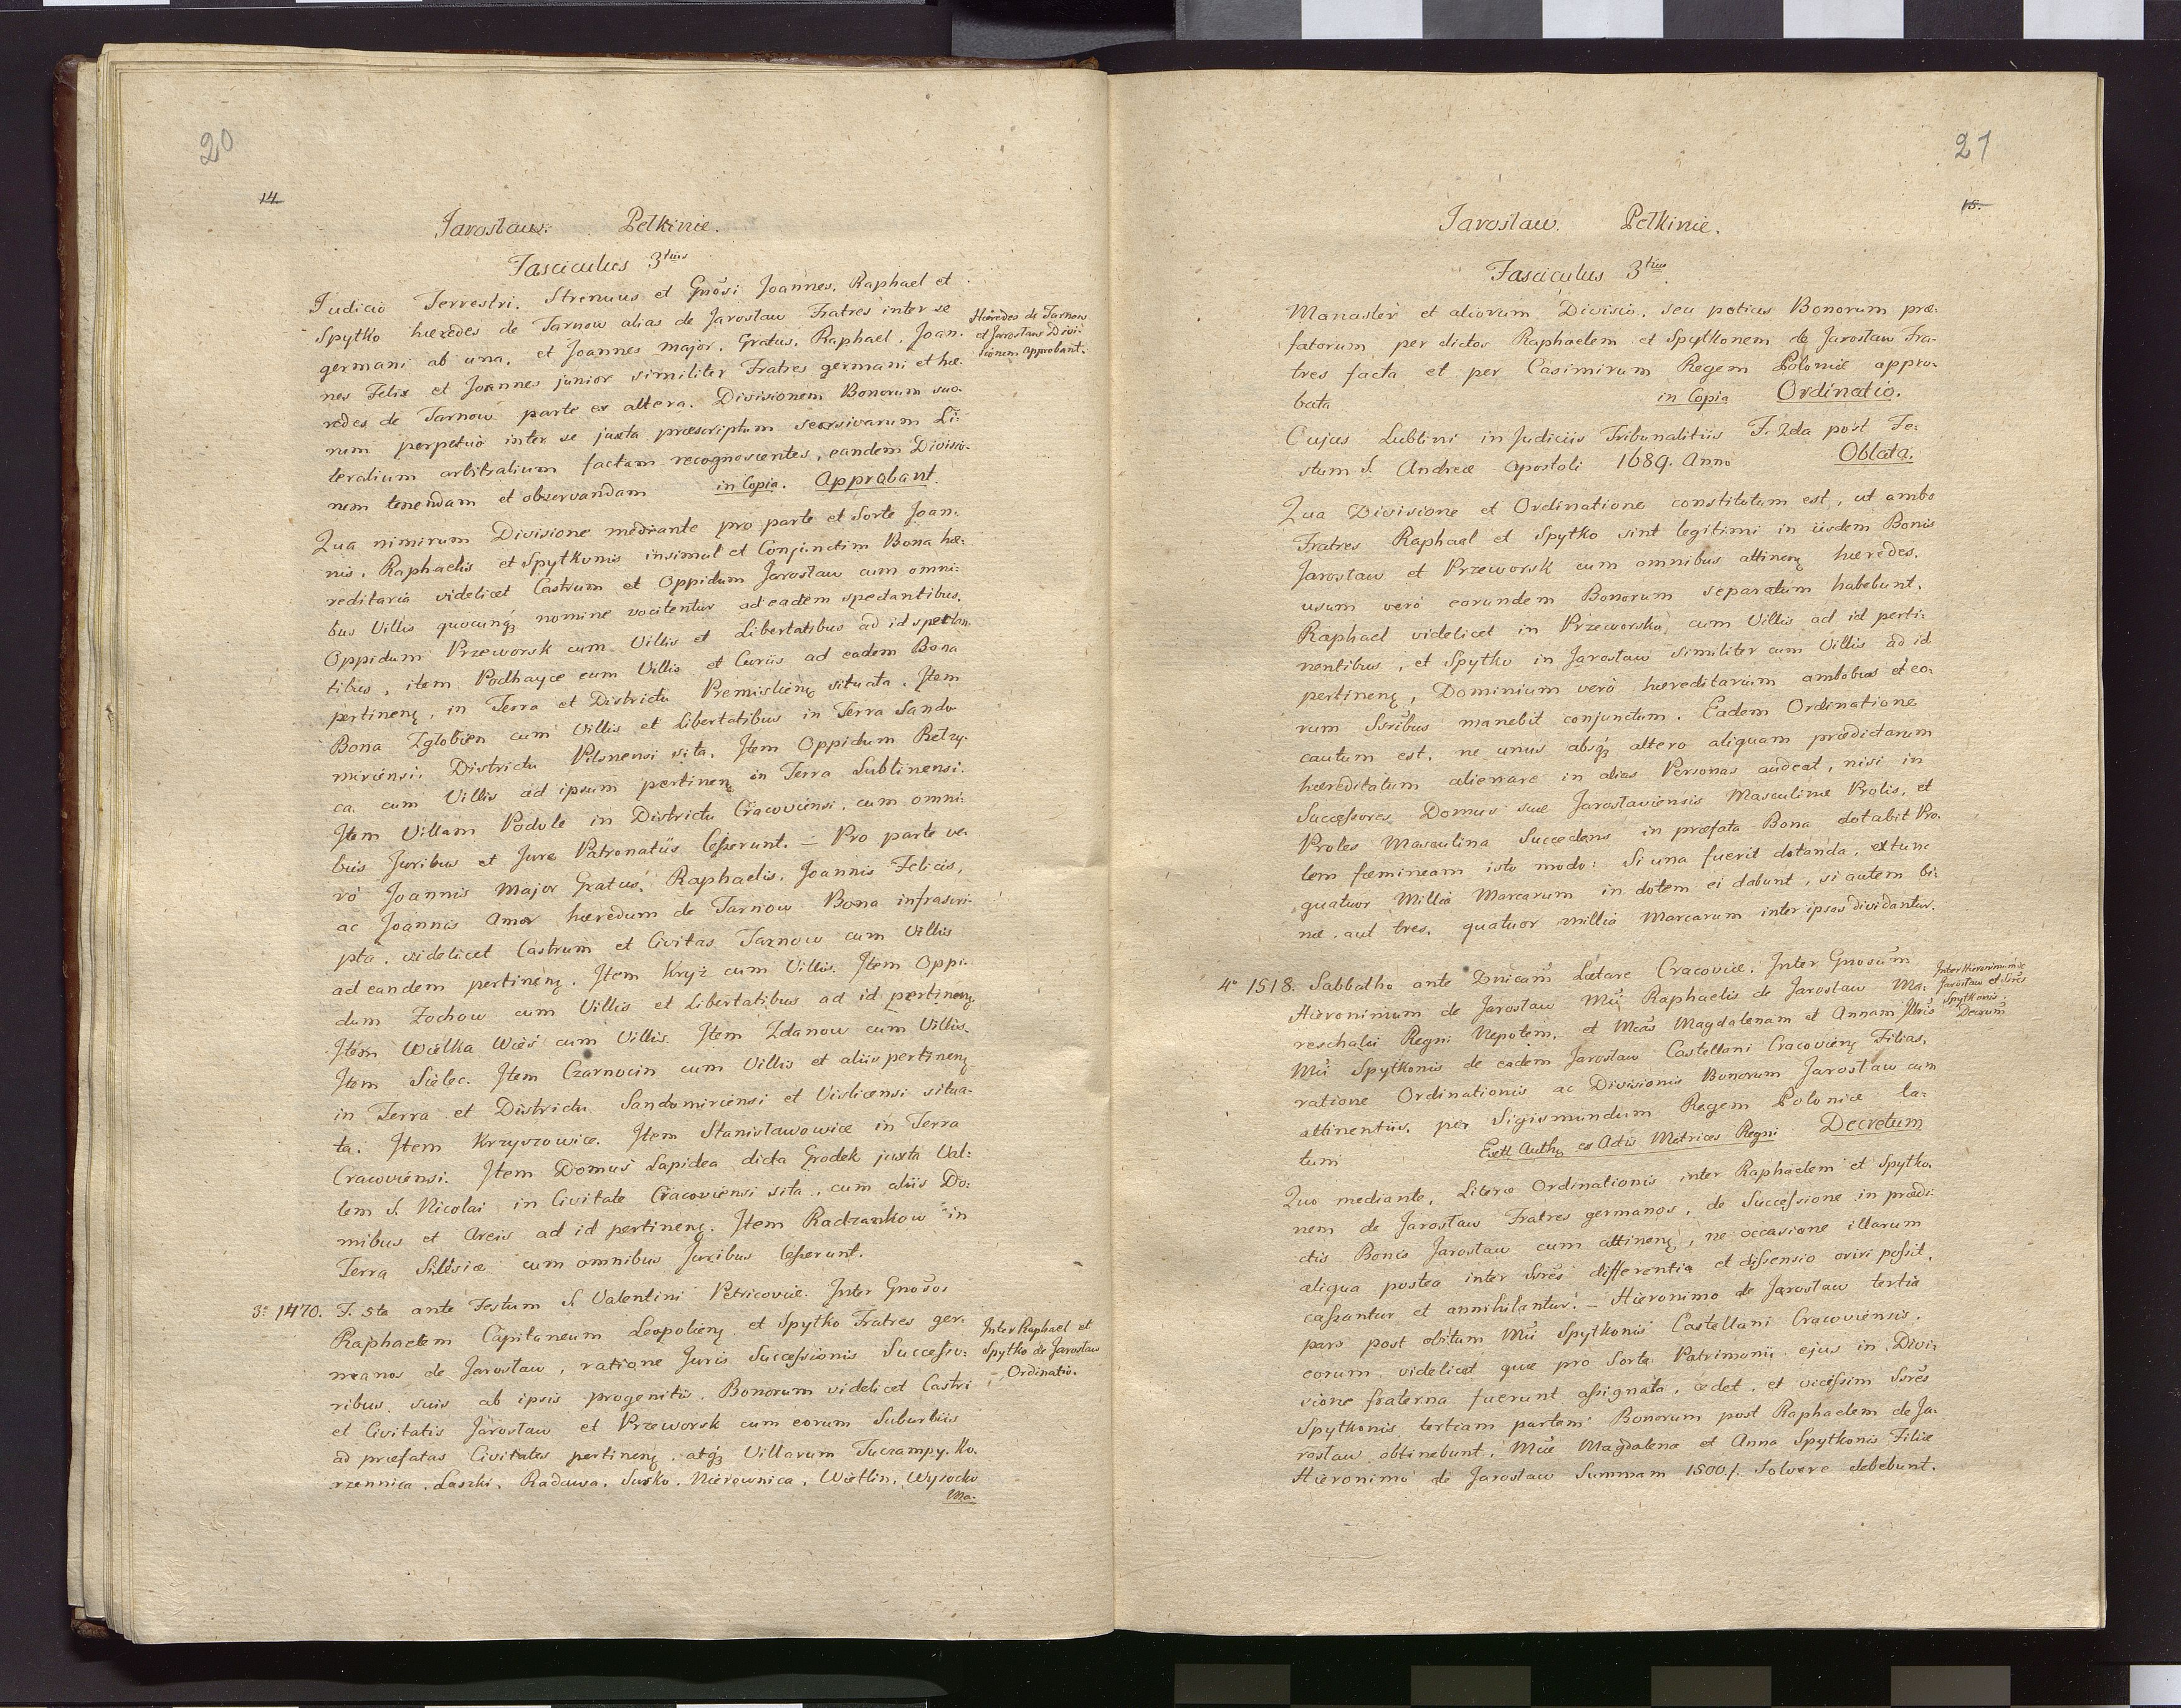 20
14.
Jarosław. Pełkinie.
Fasciculus 3tius
Judicio Terrestri. Strenuus et Gnõsi Joannes, Raphael et
Spytko hæredes de Tarnow alias de Jarosław Fratres inter se
germani ab una, et Joannes major, Gratus, Raphael, Joan.
nes Felix et Joannes junior similiter Fratres germani et hæ-
redes de Tarnow parte ex altera. Divisionem Bonorum suo-
rum perpetuò inter se juxta præscriptum seorsivarum Li-
teralium arbitralium factam recognoscentes, eandem Divisio-
nem tenendam et observandam in Copia. Approbant.
Hæredes de Tarnow
et Jarosław Divi-
sionem approbant.
Qua nimirum Divisione mediante pro parte et Sorte Joan-
nis, Raphaelis et Spytkonis insimul et Conjunctim Bona hæ-
reditaria videlicet Castrum et Oppidum Jarosław cum omni-
bus Villis quocunqꝫ nomine vocitentur ad eadem spectantibus.
Oppidum Przeworsk cum Villis et Libertatibus ad id spectan-
tibus, item Podhayce cum Villis et Curiis ad eadem Bona
pertinenꝭ, in Terra et Districtu Premislienꝭ situata. Item
Bona Zglobien cum Villis et Libertatibus in Terra Sando-
miriensi Districtu Pilsnensi sita, Item Oppidum Bełzy-
ca cum Villis ad ipsum pertinenꝭ in Terra Lublinensi.
Item Villam Podole in Districtu Cracoviensi, cum omni-
bus Juribus et Jure Patronatûs Cesserunt. – Pro parte ve-
rò Joannis Major Gratus, Raphaelis, Joannis Felicis,
ac Joannis Amor hæredum de Tarnow Bona infrascri-
pta, videlicet Castrum et Civitas Tarnow cum Villis
ad eandem pertinenꝭ. Item Kryż cum Villis. Item Oppi-
dum Zochow cum Villis et Libertatibus ad id pertinenꝭ
Item Wielka Wieś cum Villis. Item Zdanow cum Villis.
Item Sielec. Item Czarnocin cum Villis et aliis pertinenꝭ
in Terra et Districtu Sandomiriensi et Visliciensi situa-
ta. Item Krzyszowice. Item Stanisławowice in Terra
Cracoviensi. Item Domus Lapidea dicta Grodek juxta Val-
lem S. Nicolai in Civitate Cracoviensi sita, cum aliis Do-
mibus et Areis ad id pertinenꝭ. Item Radzankow in
Terra Silesiæ cum omnibus Juribus Cesserunt.
3º 1470. F. 5ta ante Festum S. Valentini Petricoviæ. Inter Gnõsos
Raphaelem Capitaneum Leopolienꝭ et Spytko Fratres ger-
manos de Jarosław, ratione Juris Successionis Successo-
ribus suis ab ipsis progenitis, Bonorum videlicet Castri
et Civitatis Jarosław et Przeworsk cum eorum Suburbiis
ad præfatas Civitates pertinenꝭ, atqꝫ Villarum Tuczampy, Ko-
rzennica, Laszki, Radawa, Surko, Nierownica, Wietlin, Wysocko
Ma-
Inter Raphael et
Spytko de Jarosław
– Ordinatio.
21
15.
Jarosław. Pełkinie.
Fasciculus 3tius
Manaster et aliorum Divisio, seu potius Bonorum præ-
fatorum per dictos Raphaelem et Spytkonem de Jarosław Fra-
tres facta et per Casimirum Regem Poloniæ appro-
bata in Copia Ordinatio.
Cujus Lublini in Judiciis Tribunalitiis F. 2da post Fe-
stum S. Andreæ Apostoli 1689. Anno Oblata.
Qua Divisione et Ordinatione constitutum est, ut ambo
Fratres Raphael et Spytko sint legitimi in iisdem Bonis
Jarosław et Przeworsk cum omnibus attinenꝭ hæredes.
usum verò eorundem Bonorum separatum habebunt.
Raphael videlicet in Przeworsko cum Villis ad id perti-
nentibus, et Spytko in Jarosław similiter cum Villis ad id
pertinenꝭ, Dominium verò hæreditarium ambobus et eo-
rum Ssribus manebit conjunctum. Eadem Ordinatione
cautum est, ne unus absqꝫ altero aliquam prædictarum
hæreditatum alienare in alias Personas audeat, nisi in
Successores Domus suæ Jarosłaviensis Masculinæ Prolis, et
Proles Masculina Succedens in præfata Bona dotabit Pro-
lem fœmineam isto modo: Si una fuerit dotanda, extunc
quatuor Millia Marcarum in dotem ei dabunt, si autem bi-
næ aut tres, quatuor millia Marcarum inter ipsas dividantur.
4º 1518. Sabbatho ante Dnicam Lætare Cracoviæ. Inter Gnosum
Hieronimum de Jarosław Mci Raphaelis de Jarosław Ma-
reschalci Regni Nepotem, et Mcas Magdalenam et Annam Illris
Mci Spytkonis de eadem Jarosław Castellani Cracovienꝭ Filias,
ratione Ordinationis ac Divisionis Bonorum Jarosław cum
attinentiis, per Sigismundum Regem Poloniæ la-
tum Extt Authꝭ ex Actis Metrices Regni Decretum
Inter Hieronimum de
Jarosław et Ssres
Spytkonis.
Decrum
Quo mediante, Literæ Ordinationis inter Raphaelem et Spytko-
nem de Jarosław Fratres germanos, de Successione in prædi-
ctis Bonis Jarosław cum attinenꝭ, ne occasione illarum
aliqua postea inter Ssres differentia et dissensio oriri possit,
cassantur et annihilantur. – Hieronimo de Jarosław tertia
pars post obitum Mci Spytkonis Castellani Cracoviensis.
eorum videlicet quæ pro Sorte Patrimonii ejus in Divi-
sione fraterna fuerunt assignata, cedet, et vicissim Ssres
Spytkonis tertiam partem Bonorum post Raphaelem de Ja-
rosław obtinebunt. Mcæ Magdalena et Anna Spytkonis Filiæ
Hieronimo de Jarosław Summam 1500 f. Solvere debebunt.